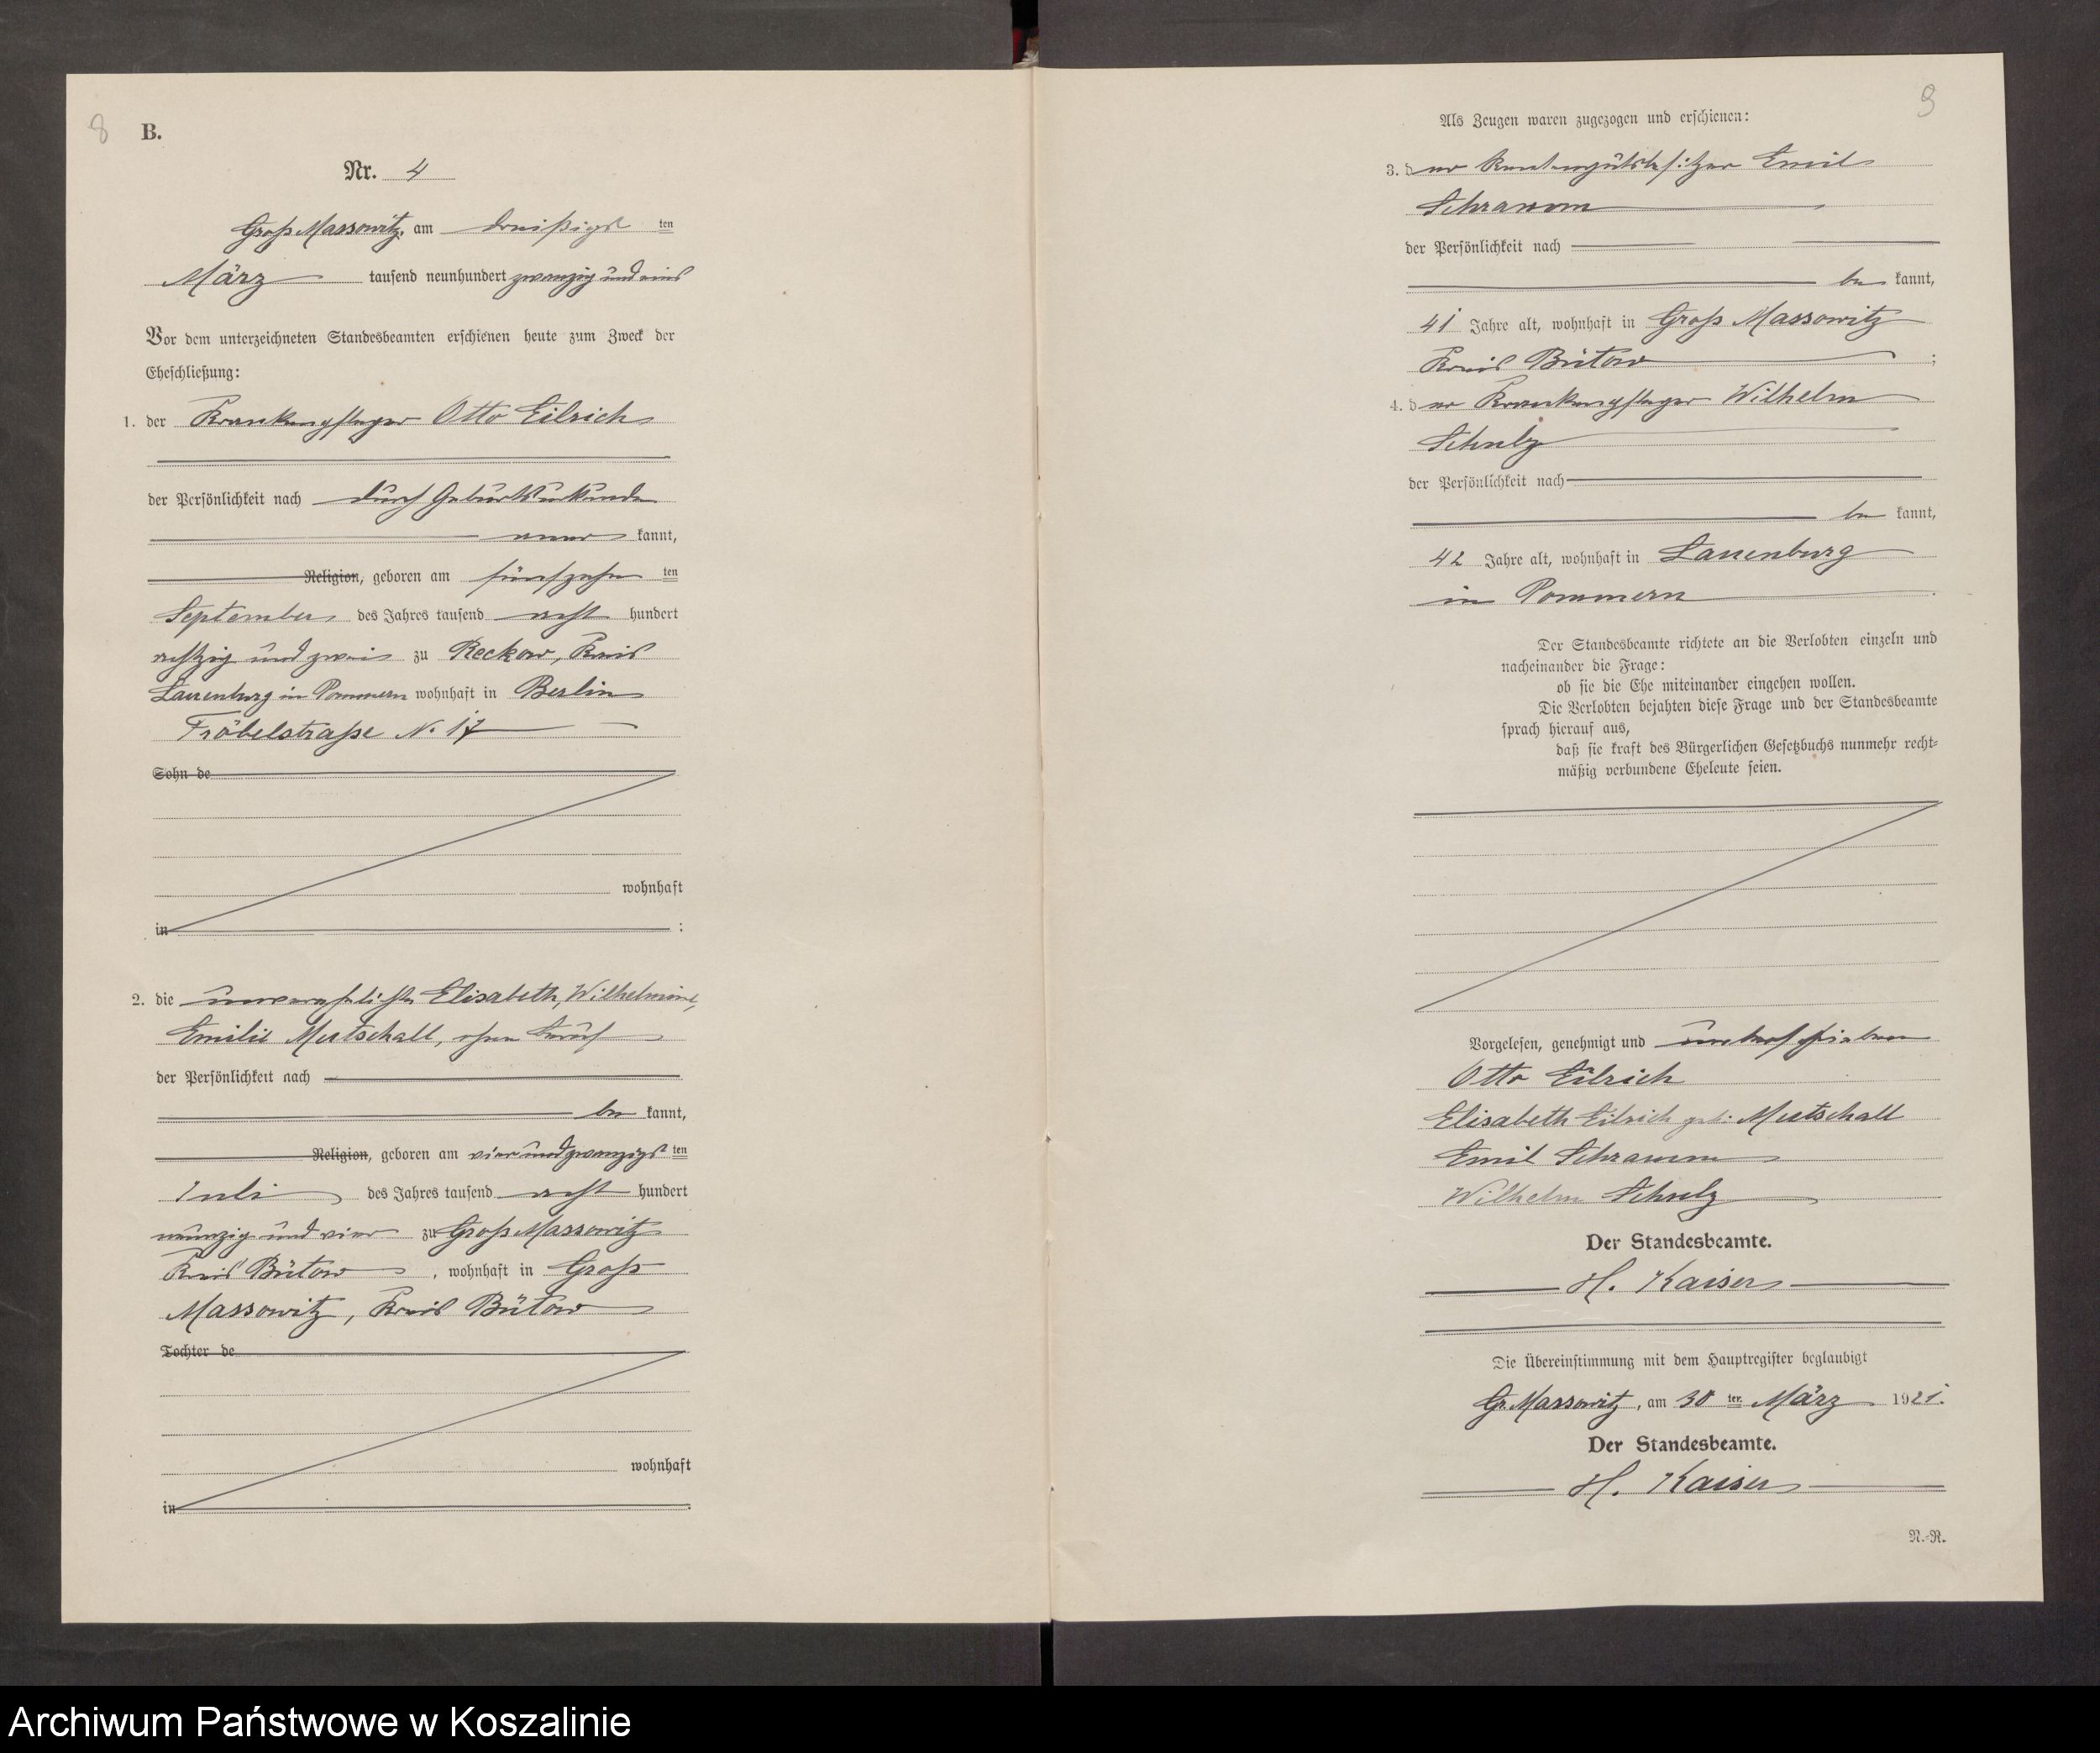 8
B.
Nr. 4
Groß Massowitz, am dreißigsten
März tausend neunhundert zwanzig und eins
Vor dem unterzeichneten Standesbeamten erschienen heute zum Zweck der
Eheschließung:
1. der Krankenpfleger Otto Eilrich
der Persönlichkeit nach durch Geburtsurkunde
anerkannt,
Religion, geboren am fünfzehnten
September des Jahres tausend acht hundert
achtzig und zwei zu Reckow, Kreis
Lauenburg in Pommern wohnhaft in Berlin
Fröbelstraße N. 17
Sohn de
wohnhaft
in :
2. die unverehelichte Elisabeth, Wilhelmine,
Emilie Mutschall, ohne Beruf
der Persönlichkeit nach
bekannt,
Religion, geboren am vierundzwanzigsten
Juli des Jahres tausend acht hundert
neunzig und vier zu Groß Massowitz
Kreis Bütow, wohnhaft in Groß
Massowitz, Kreis Bütow
Tochter de
wohnhaft
in .
9
Als Zeugen waren zugezogen und erschienen:
3. der Rentengutsbesitzer Emil
Schramm
der Persönlichkeit nach
bekannt,
41 Jahre alt, wohnhaft in Groß Massowitz
Kreis Bütow ;
4. der Krankenpfleger Wilhelm
Schulz
der Persönlichkeit nach
bekannt,
42 Jahre alt, wohnhaft in Lauenburg
in Pommern .
Der Standesbeamte richtete an die Verlobten einzeln und
nacheinander die Frage:
ob sie die Ehe miteinander eingehen wollen.
Die Verlobten bejahten diese Frage und der Standesbeamte
sprach hierauf aus,
daß sie kraft des Bürgerlichen Gesetzbuchs nunmehr recht-
mäßig verbundene Eheleute seien.
Vorgelesen, genehmigt und unterschrieben
Otto Eilrich
Elisabeth Eilrich geb. Mutschall
Emil Schramm
Wilhelm Schulz
Der Standesbeamte.
H. Kaiser
Die Übereinstimmung mit dem Hauptregister beglaubigt
Gr. Massowitz, am 30 ten März 1921.
Der Standesbeamte.
H. Kaiser
N.-R.
Archiwum Państwowe w Koszalinie